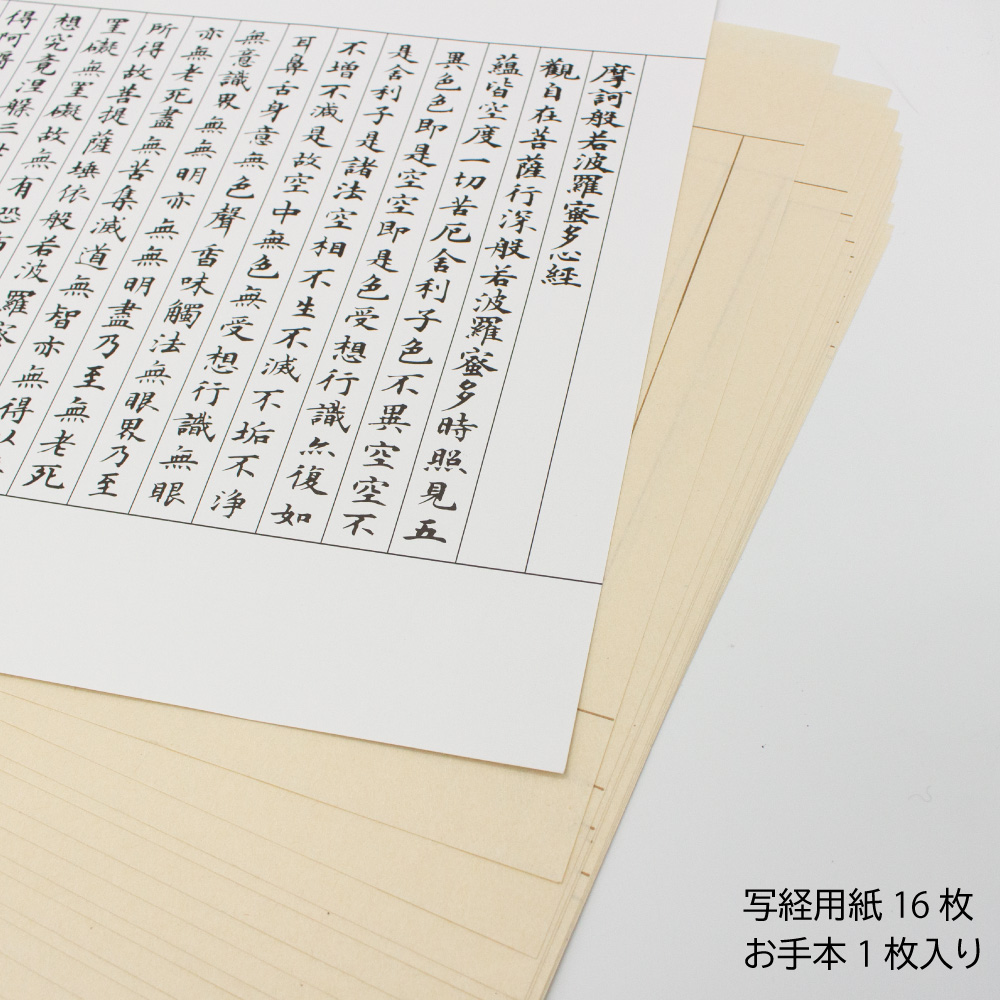 摩訶般若波羅蜜多心經
觀自在菩薩行深般若波羅蜜多時照見五
蘊皆空度一切苦厄舍利子色不異空空不
異色色即是空空即是色受想行識亦復如
是舍利子是諸法空相不生不滅不垢不淨
不增不減是故空中無色無受想行識無眼
耳鼻舌身意無色聲香味觸法無眼界乃至
無意識界無無明亦無無明盡乃至無老死
亦無老死盡無苦集滅道無智亦無得以
所得故菩提薩埵依般若波羅
罣礙無罣礙故無有恐
想究竟涅槃三
得阿
写経用紙 16 枚
お手本 1 枚入り